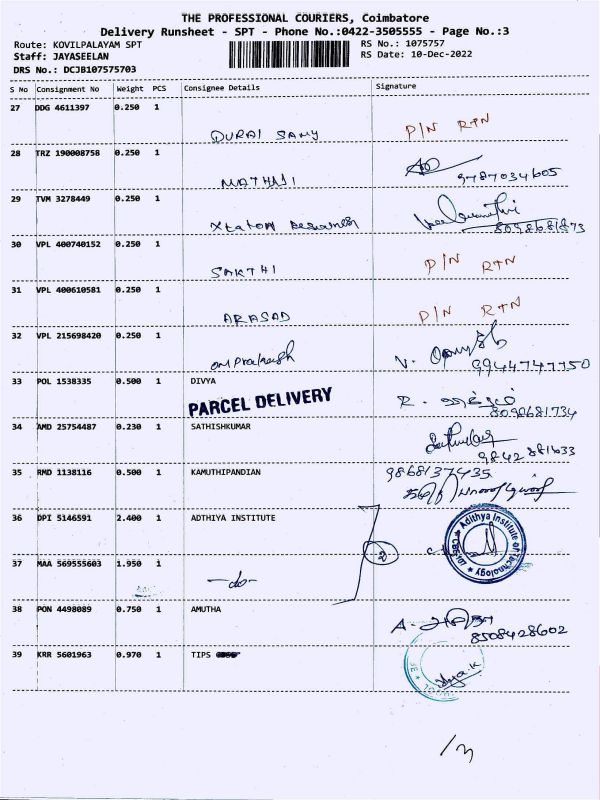 THE PROFESSIONAL COURIERS, Coimbatore
Delivery Runsheet - SPT - Phone No.:0422-3505555 - Page No.:3
Route: KOVILPALAYAM SPT RS No.: 1075757
Staff: JAYASEELAN RS Date: 10-Dec-2022
DRS No.: DCJB107575703
S No Consignment No Weight PCS Consignee Details Signature
27 DDG 4611397 0.250 1
DURAI SAMY P/N RTN
28 TRZ 190008758 0.250 1
MATHAJI 9787034605
29 TVM 3278449 0.250 1
30 VPL 400740152 0.250 1
SAKTHI P/N RTN
31 VPL 400610581 0.250 1
ARASAD P/N RTN
32 VPL 215698420 0.250 1
om Prakash 9944747750
33 POL 1538335 0.500 1 DIVYA
PARCEL DELIVERY 8098681734
34 AMD 25754487 0.230 1 SATHISHKUMAR
9842881633
35 RMD 1138116 0.500 1 KAMUTHIPANDIAN 9868137435
36 DPI 5146591 2.400 1 ADTHIYA INSTITUTE
Adithya Institute of Technology
2
37 MAA 569555603 1.950 1
-do-
38 PON 4498089 0.750 1 AMUTHA
8508428602
39 KRR 5601963 0.970 1 TIPS